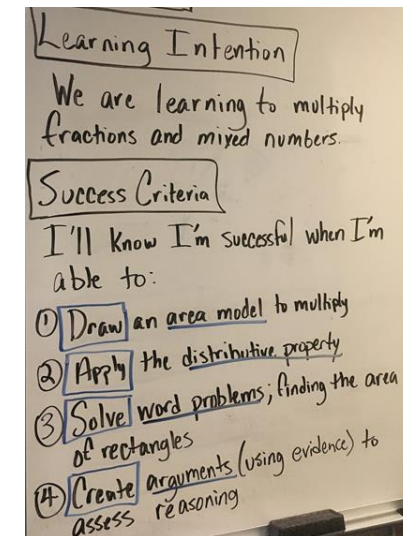 Learning Intention
We are learning to multiply
fractions and mixed numbers.
Success Criteria
I'll know I'm successful when I'm
able to:
① Draw an area model to multiply
② Apply the distributive property
③ Solve word problems; finding the area
of rectangles
④ Create arguments (using evidence) to
assess reasoning